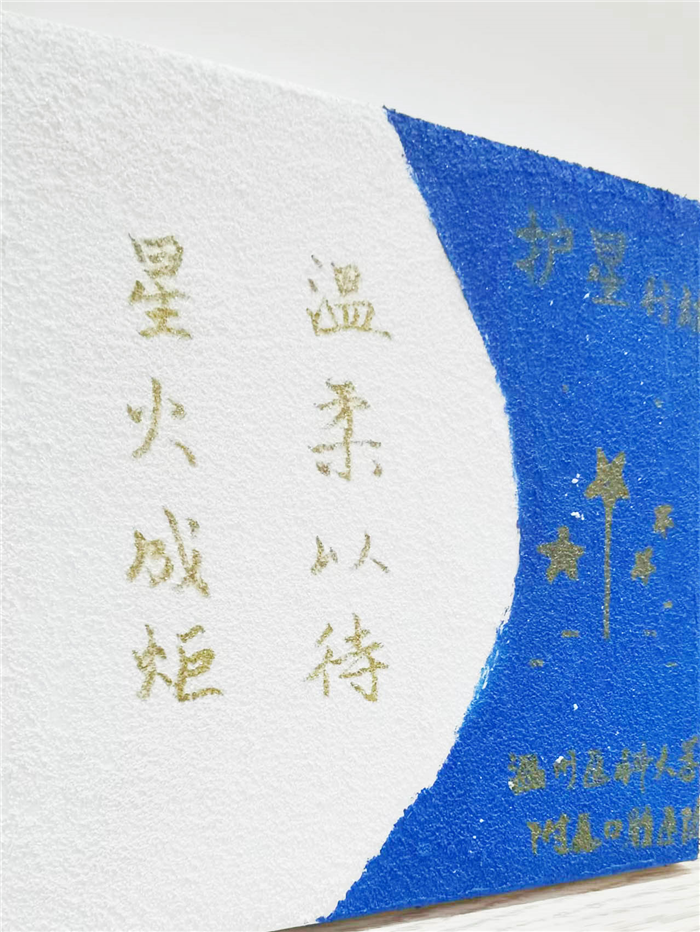 温柔以待
星火成炬
护星计划
温州医科大学
附属口腔医院